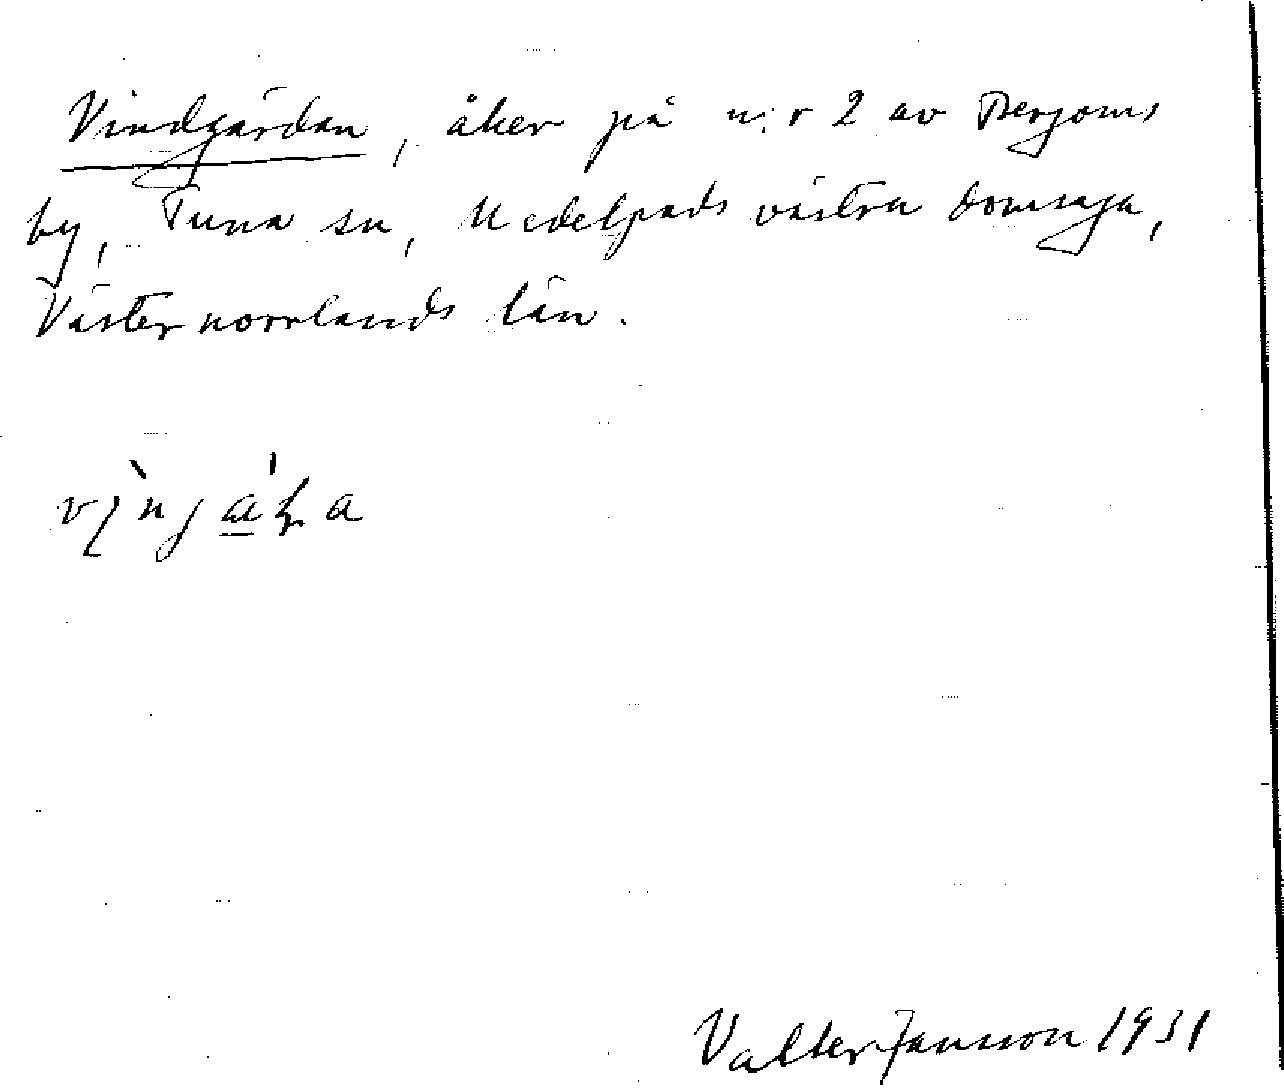 Vindgärdan, åker på n:r 2 av Bergoms
by, Tuna sn, Medelpads västra domsaga,
Västernorrlands län.
Valter Jansson 1931